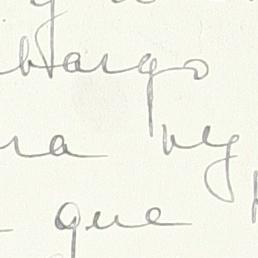 bargo
ra vez
que